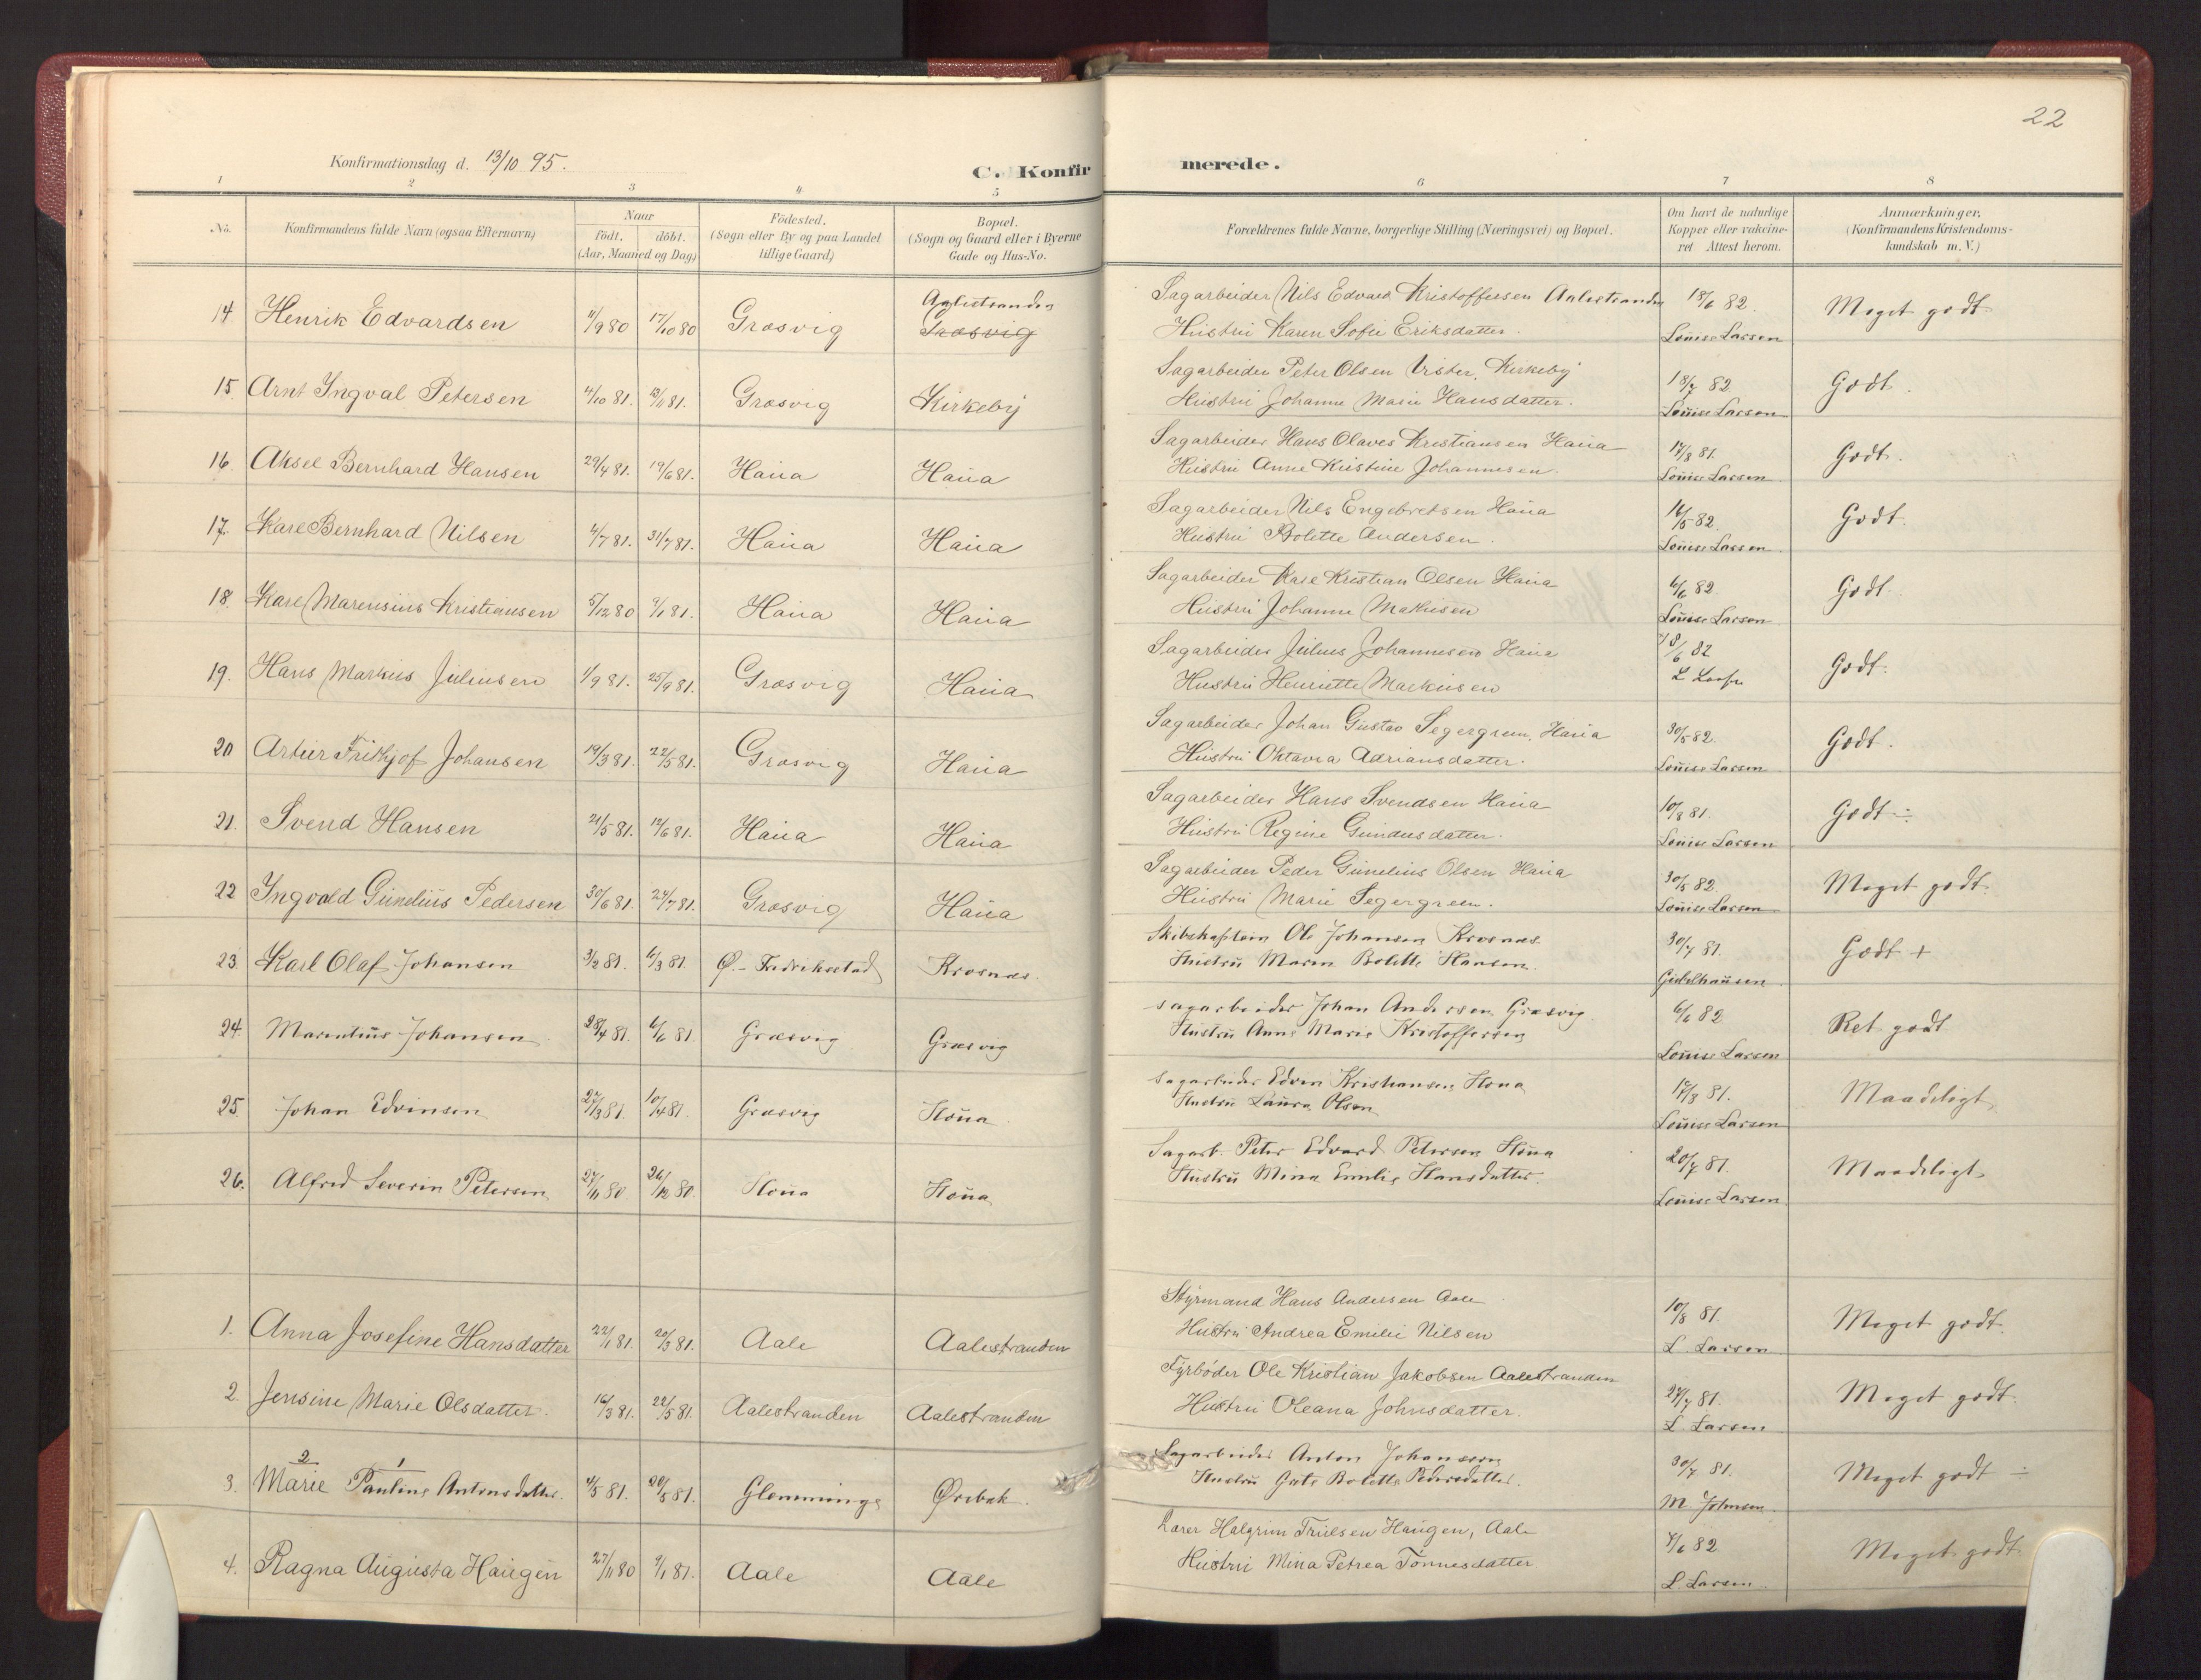 22
Konfirmationsdag d. 13/10 95.
C. Konfirmerede.
1 2 3 4 5 6 7 8
No. Konfirmandens fulde Navn (ogsaa Efternavn) Naar födt. döbt. (Aar, Maaned og Dag) Födested. (Sogn eller By og paa Landet tillige Gaard) Bopæl. (Sogn og Gaard eller i Byerne Gade og Hus-No. Forældrenes fulde Navne, borgerlige Stilling (Næringsvei) og Bopæl. Om havt de naturlige Kopper eller vakcineret Attest herom. Anmærkninger. (Konfirmandens Kristendomskundskab m. V.)
14 Henrik Edvardsen 11/9 80 17/10 80 Græsvig Aalestranden Græsvig Sagarbeider Nils Edvard Kristoffersen Aalestranden 18/6 82 Meget godt
Hustru Karen Sofie Eriksdatter. Louise Larsen
15. Arnt Ingval Petersen 4/10 81. 13/11 81. Græsvig Kirkeby Sagarbeider Peter Olsen Vister, Kirkeby 18/7 82 Godt.
Hustru Johanne Marie Hansdatter. Louise Larsen
16. Aksel Bernhard Hansen 29/4 81. 19/6 81. Haua Haua Sagarbeider Hans Olaves Kristiansen Haua 17/8 81. Godt.
Hustru Anne Kristine Johannesen. Louise Larsen
17. Karl Bernhard Nilsen 4/7 81. 31/7 81. Haua Haua Sagarbeider Nils Engebretsen Haua 16/5 82 Godt.
Hustru Bolette Andersen. Louise Larsen
18. Karl Marensius Kristiansen 5/12 80 9/1 81. Haua Haua Sagarbeider Karl Kristian Olsen Haua 6/6 82 Godt
Hustru Johanne Mathisen Louise Larsen
19. Hans Markus Juliusen 1/9 81. 25/9 81. Græsvig Haua Sagarbeider Julius Johannesen Haua 18/6 82 Godt.
Hustru Henriette Markusen L Larsen
20 Artur Frithjof Johansen 19/3 81. 22/5 81. Græsvig Haua Sagarbeider Johan Gustav Segergren, Haua 30/5 82. Godt.
Hustru Oktavia Adriansdatter. Louise Larsen
21. Svend Hansen 21/5 81. 12/6 81. Haua Haua Sagarbeider Hans Svendsen Haua 10/8 81. Godt ÷
Hustru Regine Gundersdatter. Louise Larsen
22 Ingvald Gunelius Pedersen 30/6 81. 24/7 81. Græsvig Haua Sagarbeider Peder Gunelius Olsen Haua 30/5 82 Meget godt.
Hustru Marie Segergreen. Louise Larsen
23. Karl Olaf Johansen 3/2 81. 6/3 81. Ø.-Fredriksstad Krosnæs. Skibskaptein Ole Johansen Krosnæs. 30/7 81. Godt +
Hustru Maren Bolette Hansen. Gidelhausen
24. Marentius Johansen 28/4 81. 6/6 81. Græsvig Græsvig Sagarbeider Johan Andersen Græsvig 6/6 82 Ret godt
Hustru Anne Marie Kristoffersen Louise Larsen
25 Johan Edvinsen 27/3 81. 10/4 81. Græsvig Houa. Sagarbeider Edvin Kristiansen Houa 17/8 81. Maadeligt
Hustru Laura Olsen Louise Larsen
26. Alfred Severin Petersen 27/11 80 26/12 80. Houa Houa Sagarb. Peter Edvard Petersen Houa 20/7 81. Maadeligt
Hustru Mina Emilie Hansdatter. Louise Larsen
1. Anna Josefine Hansdatter 22/1 81. 20/3 81. Aale Aalestranden Styrmand Hans Andersen Aale 10/8 81. Meget godt.
Hustru Andrea Emilie Nilsen L. Larsen
2. Jensine Marie Olsdatter. 16/3 81. 22/5 81. Aalestranden Aalestranden Fyrbøder Ole Kristian Jakobsen Aalestranden 27/7 81. Meget godt.
Hustru Oleana Johnsdatter. L. Larsen
2 1
3. Marie Pauline Antonsdatter. 4/5 81. 29/5 81. Glemminge Ørebæk. Sagarbeider Anton Johansen 30/7 81. Meget godt ÷
Hustru Grete Bolette Pedersdatter. M Johnsen.
4. Ragna Augusta Haugen 27/11 80 9/1 81. Aale Aale Lærer Halgrim Trulsen Haugen, Aale 7/6 82. Meget godt.
Hustru Mina Petrea Tønnesdatter L Larsen.